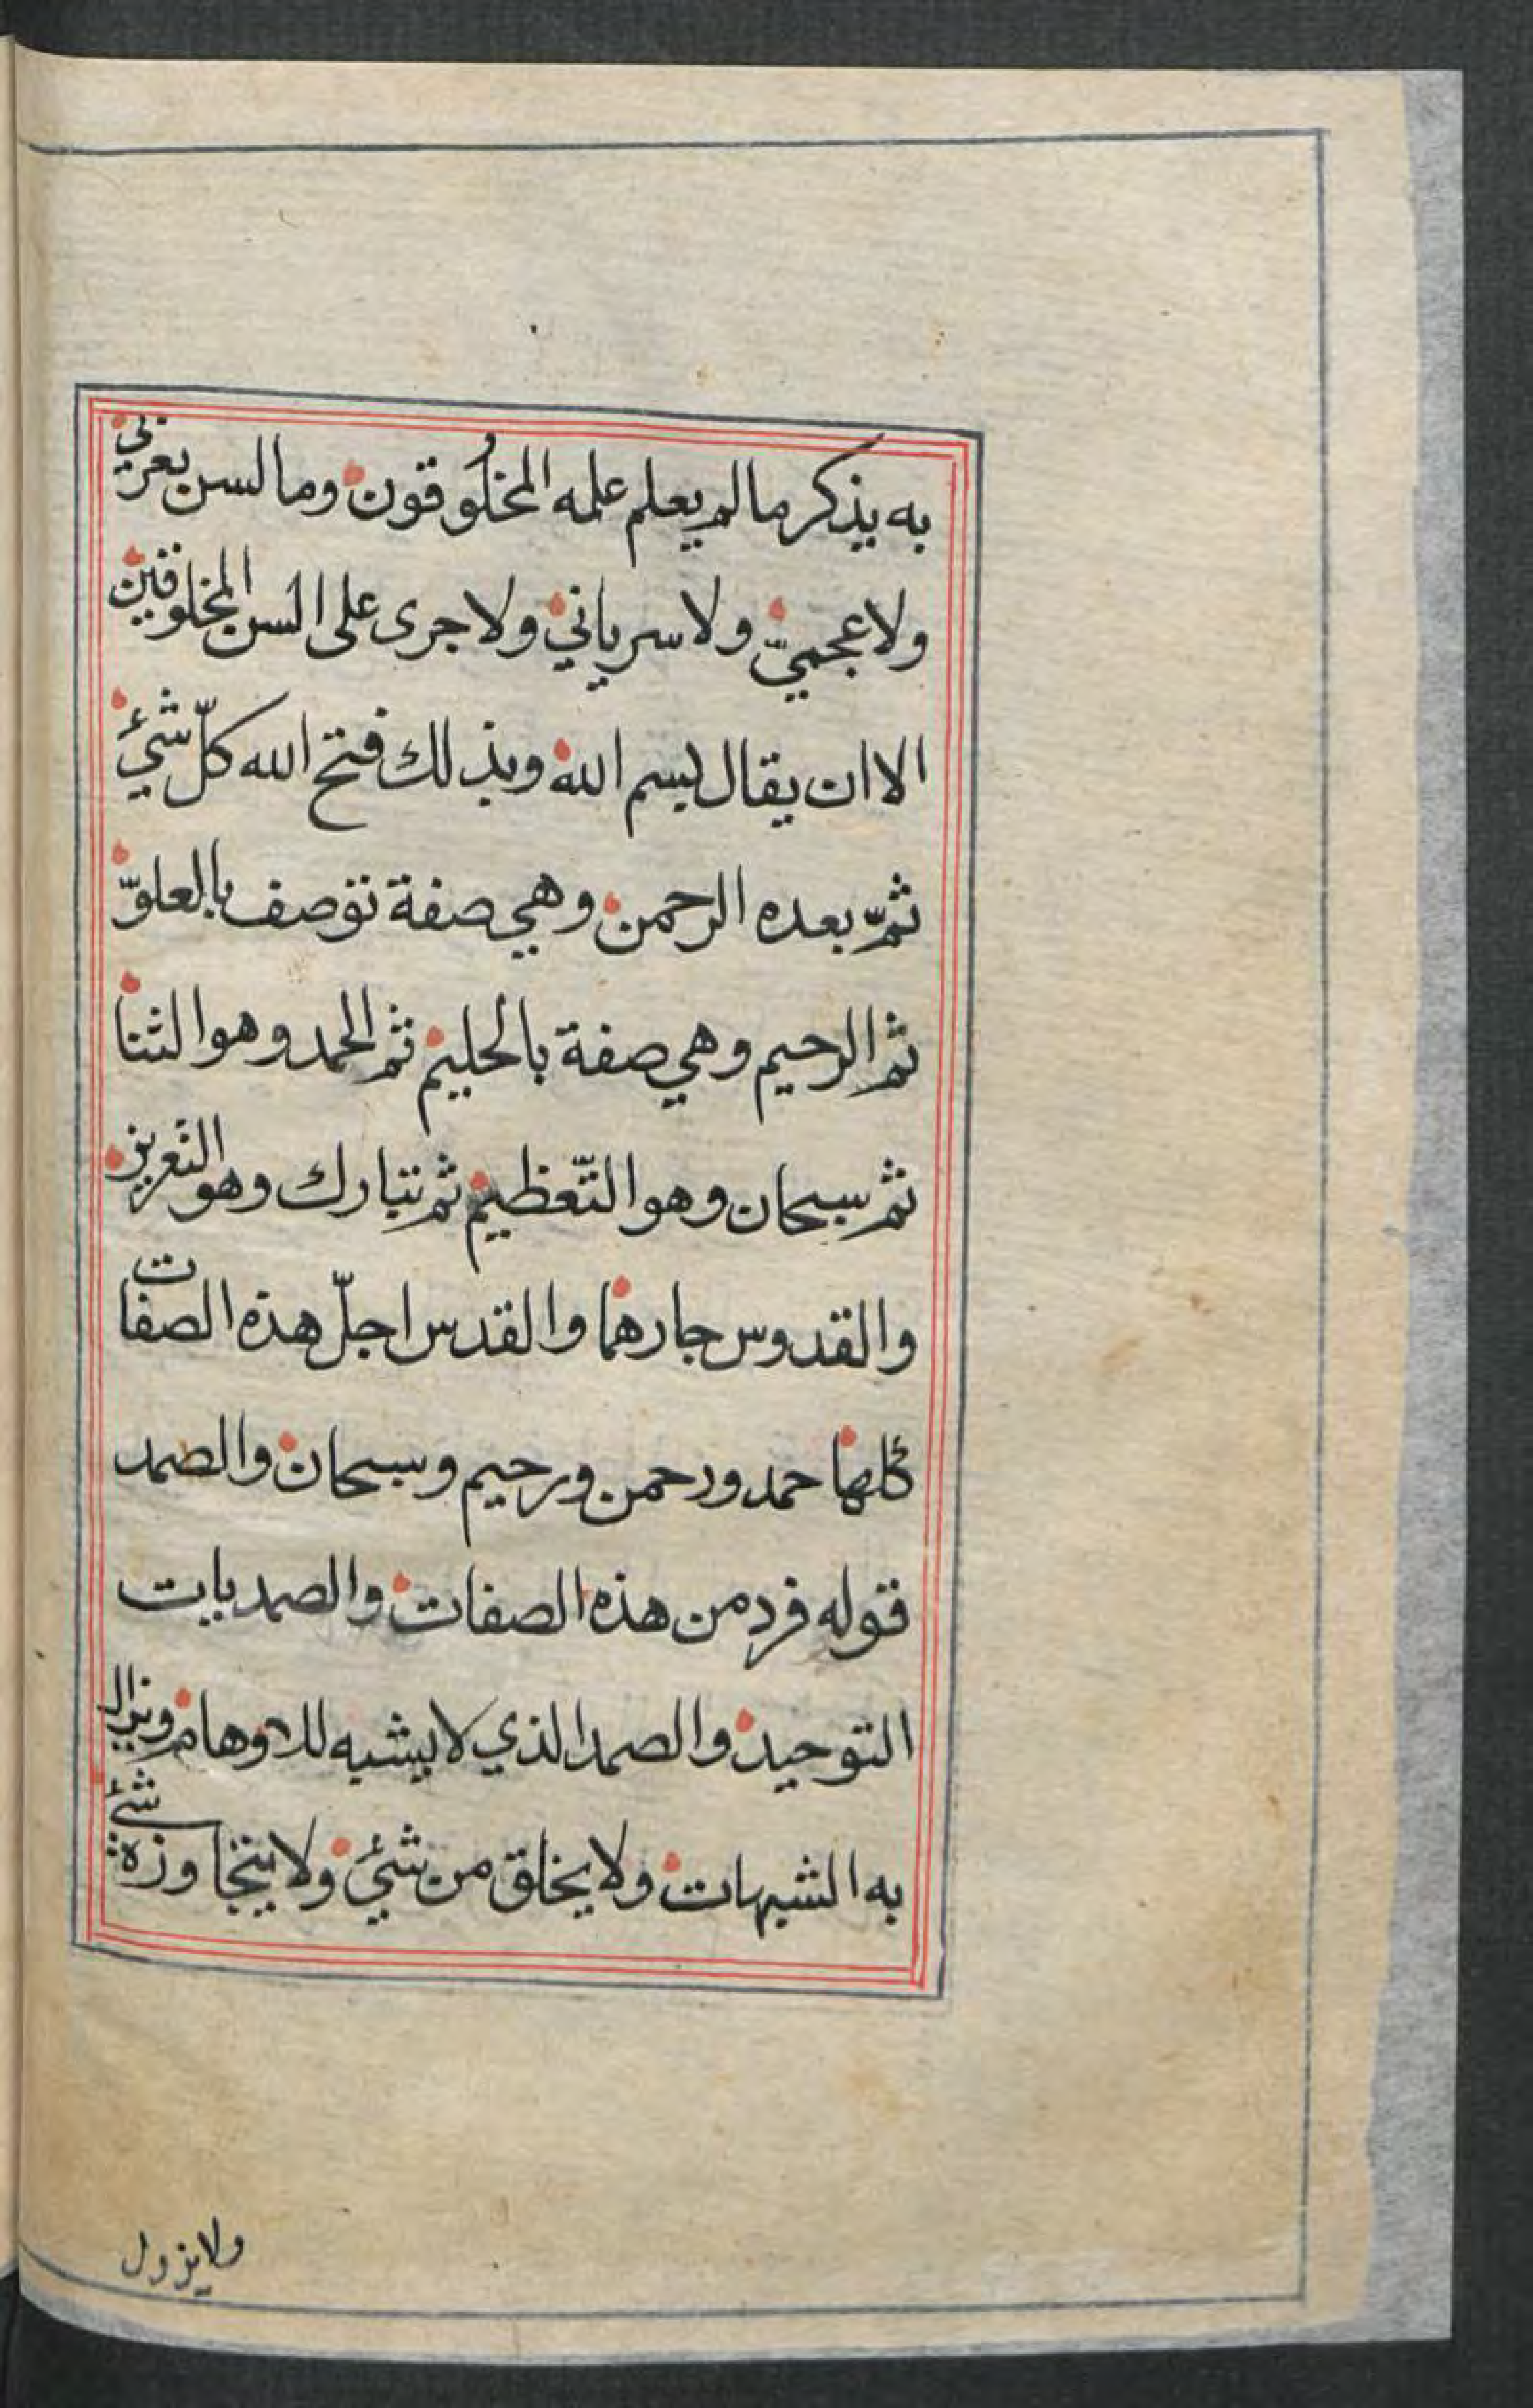 به يذكر مالم يعلم علمه المخلُوقون وما لسن بعربي
ولا عجميّ ولا سرياني ولا جرى على السن المخلوقين
الا ان يقال بسم الله وبذلك فتح الله كلّ شيئ
ثمّ بعده الرحمن وهي صفة توصف بالعلوّ
ثم الرحيم وهي صفة بالحليم ثم الحمد وهو الثنا
ثم سبحان وهو التّعظيم ثم تبارك وهو التعزيز
والقدوس جارهما والقدس اجلّ هذه الصفات
كلها حمد ورحمن ورحيم وسبحان والصمد
قوله فرد من هذه الصفات والصمد بات
التوحيد والصمد الذي لا يشبه للاوهام ويزال
به الشبهات ولا يخلق من شيئ ولا يتجاوزه شئ
ولا يزول